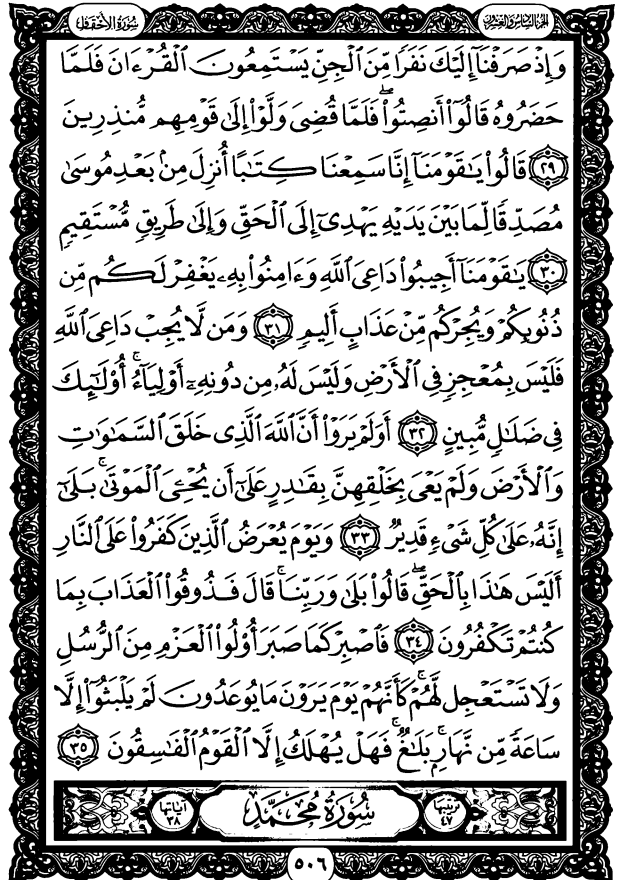 الجزء السادس والعشرون
سورة الأحقاف
وَإِذْ صَرَفْنَآ إِلَيْكَ نَفَرًا مِّنَ ٱلْجِنِّ يَسْتَمِعُونَ ٱلْقُرْءَانَ فَلَمَّا
حَضَرُوهُ قَالُوٓا۟ أَنصِتُوا۟ ۖ فَلَمَّا قُضِىَ وَلَّوْا۟ إِلَىٰ قَوْمِهِم مُّنذِرِينَ
٢٩ قَالُوا۟ يَٰقَوْمَنَآ إِنَّا سَمِعْنَا كِتَٰبًا أُنزِلَ مِنۢ بَعْدِ مُوسَىٰ
مُصَدِّقًا لِّمَا بَيْنَ يَدَيْهِ يَهْدِىٓ إِلَى ٱلْحَقِّ وَإِلَىٰ طَرِيقٍ مُّسْتَقِيمٍ
٣٠ يَٰقَوْمَنَآ أَجِيبُوا۟ دَاعِىَ ٱللَّهِ وَءَامِنُوا۟ بِهِۦ يَغْفِرْ لَكُم مِّن
ذُنُوبِكُمْ وَيُجِرْكُم مِّنْ عَذَابٍ أَلِيمٍ ٣١ وَمَن لَّا يُجِبْ دَاعِىَ ٱللَّهِ
فَلَيْسَ بِمُعْجِزٍ فِى ٱلْأَرْضِ وَلَيْسَ لَهُۥ مِن دُونِهِۦٓ أَوْلِيَآءُ ۚ أُو۟لَٰٓئِكَ
فِى ضَلَٰلٍ مُّبِينٍ ٣٢ أَوَلَمْ يَرَوْا۟ أَنَّ ٱللَّهَ ٱلَّذِى خَلَقَ ٱلسَّمَٰوَٰتِ
وَٱلْأَرْضَ وَلَمْ يَعْىَ بِخَلْقِهِنَّ بِقَٰدِرٍ عَلَىٰٓ أَن يُحْـِۧىَ ٱلْمَوْتَىٰ ۚ بَلَىٰٓ
إِنَّهُۥ عَلَىٰ كُلِّ شَىْءٍ قَدِيرٌ ٣٣ وَيَوْمَ يُعْرَضُ ٱلَّذِينَ كَفَرُوا۟ عَلَى ٱلنَّارِ
أَلَيْسَ هَٰذَا بِٱلْحَقِّ ۖ قَالُوا۟ بَلَىٰ وَرَبِّنَا ۚ قَالَ فَذُوقُوا۟ ٱلْعَذَابَ بِمَا
كُنتُمْ تَكْفُرُونَ ٣٤ فَٱصْبِرْ كَمَا صَبَرَ أُو۟لُوا۟ ٱلْعَزْمِ مِنَ ٱلرُّسُلِ
وَلَا تَسْتَعْجِل لَّهُمْ ۚ كَأَنَّهُمْ يَوْمَ يَرَوْنَ مَا يُوعَدُونَ لَمْ يَلْبَثُوٓا۟ إِلَّا
سَاعَةً مِّن نَّهَارٍۭ ۚ بَلَٰغٌ ۚ فَهَلْ يُهْلَكُ إِلَّا ٱلْقَوْمُ ٱلْفَٰسِقُونَ ٣٥
ترتيبها ٤٧ سُورَةُ مُحَمَّدٍ آياتها ٣٨
٥٠٦